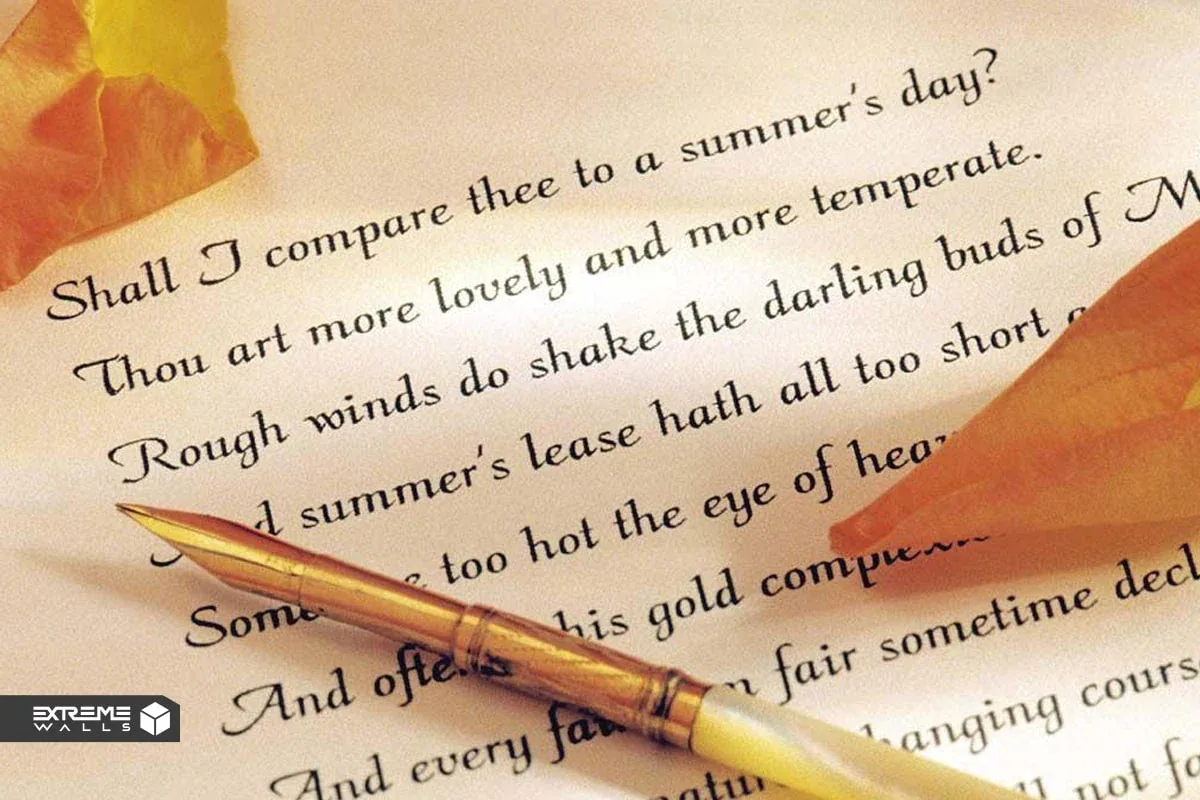 Shall I compare thee to a summer's day?
Thou art more lovely and more temperate.
Rough winds do shake the darling buds of
summer's lease hath all too short
too hot the eye of
And his gold
fair sometime
And every
not
EXTREME
WALLS